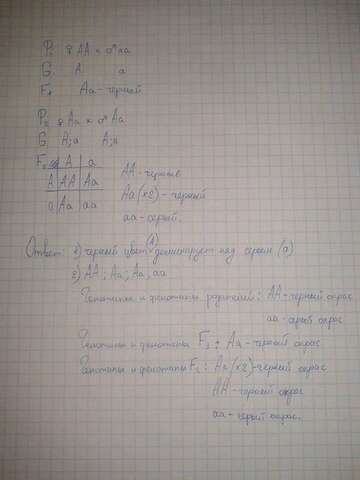 P₁ ♀ AA × ♂ aa
G: A a
F₁ Aa - черный
P₂ ♀ Aa × ♂ Aa
G A; a A; a
F₂ A a
A AA Aa
a Aa aa
AA - черные
Aa (x2) - черный
aa - серый.
Ответ: 1) черный цвет (A) доминирует над серым (a)
2) AA; Aa; Aa; aa
Генотипы и фенотипы родителей: AA - черный окрас
aa - серый окрас
Генотипы и фенотипы F₁: Aa - черный окрас
Генотипы и фенотипы F₂: Aa (x2) - черный окрас
AA - черный окрас
aa - серый окрас.